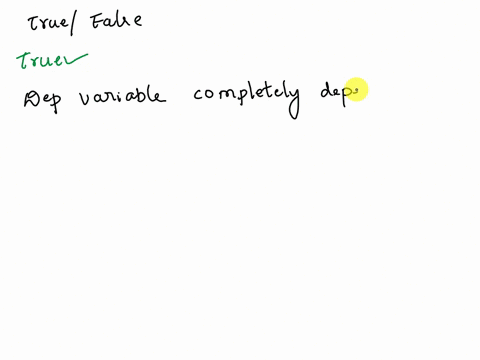 True/ False
True✓
Dep variable completely dep